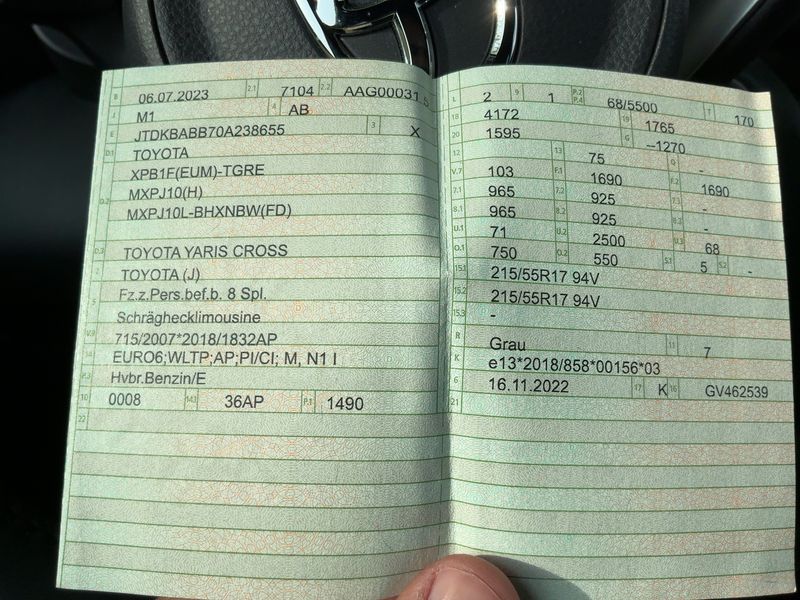 B 06.07.2023 2.1 7104 2.2 AAG00031 5
J M1 4 AB
E JTDKBABB70A238655 3 X
D.1 TOYOTA
XPB1F(EUM)-TGRE
D.2 MXPJ10(H)
MXPJ10L-BHXNBW(FD)
D.3 TOYOTA YARIS CROSS
2 TOYOTA (J)
5 Fz.z.Pers.bef.b. 8 Spl.
Schräghecklimousine
V.9 715/2007*2018/1832AP
14 EURO6;WLTP;AP;PI/CI; M, N1 I
P.3 Hybr.Benzin/E
10 0008 14.1 36AP P.1 1490
22
L 2 9 1 P.2 P.4 68/5500 T 170
18 4172 19 1765
20 1595 G --1270
12 13 75 Q -
V.7 103 F.1 1690 F.2 1690
7.1 965 7.2 925 7.3 -
8.1 965 8.2 925 8.3 -
U.1 71 U.2 2500 U.3 68
O.1 750 O.2 550 S.1 5 S.2 -
15.1 215/55R17 94V
15.2 215/55R17 94V
15.3 -
R Grau 11 7
K e13*2018/858*00156*03
6 16.11.2022 17 K 16 GV462539
21